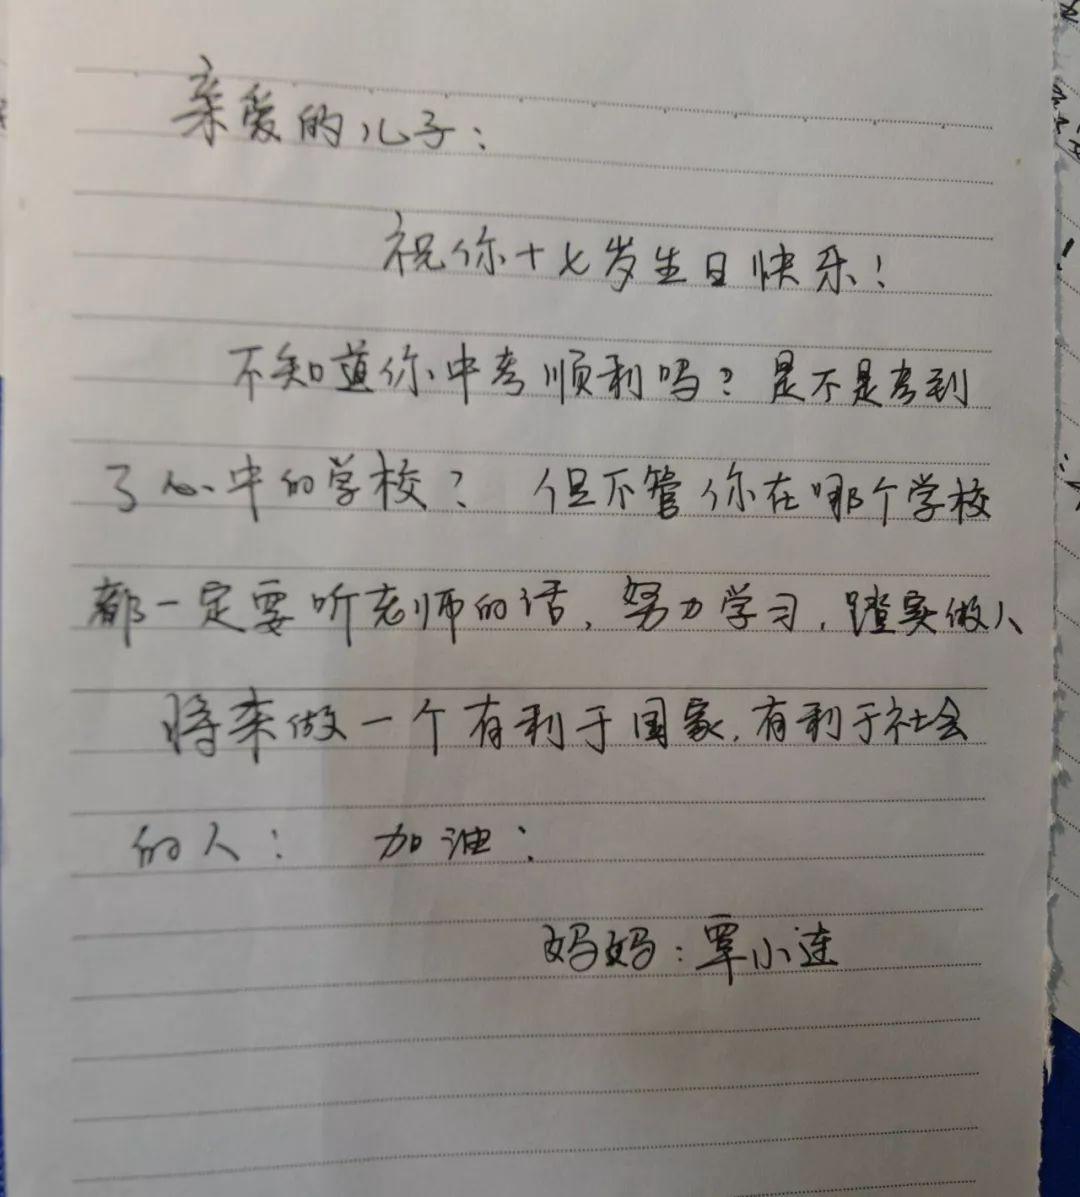 亲爱的儿子：
祝你十七岁生日快乐！
不知道你中考顺利吗？是不是考到
了心中的学校？但不管你在哪个学校
都一定要听老师的话，努力学习，踏实做人
将来做一个有利于国家，有利于社会
的人！加油！
妈妈：覃小连